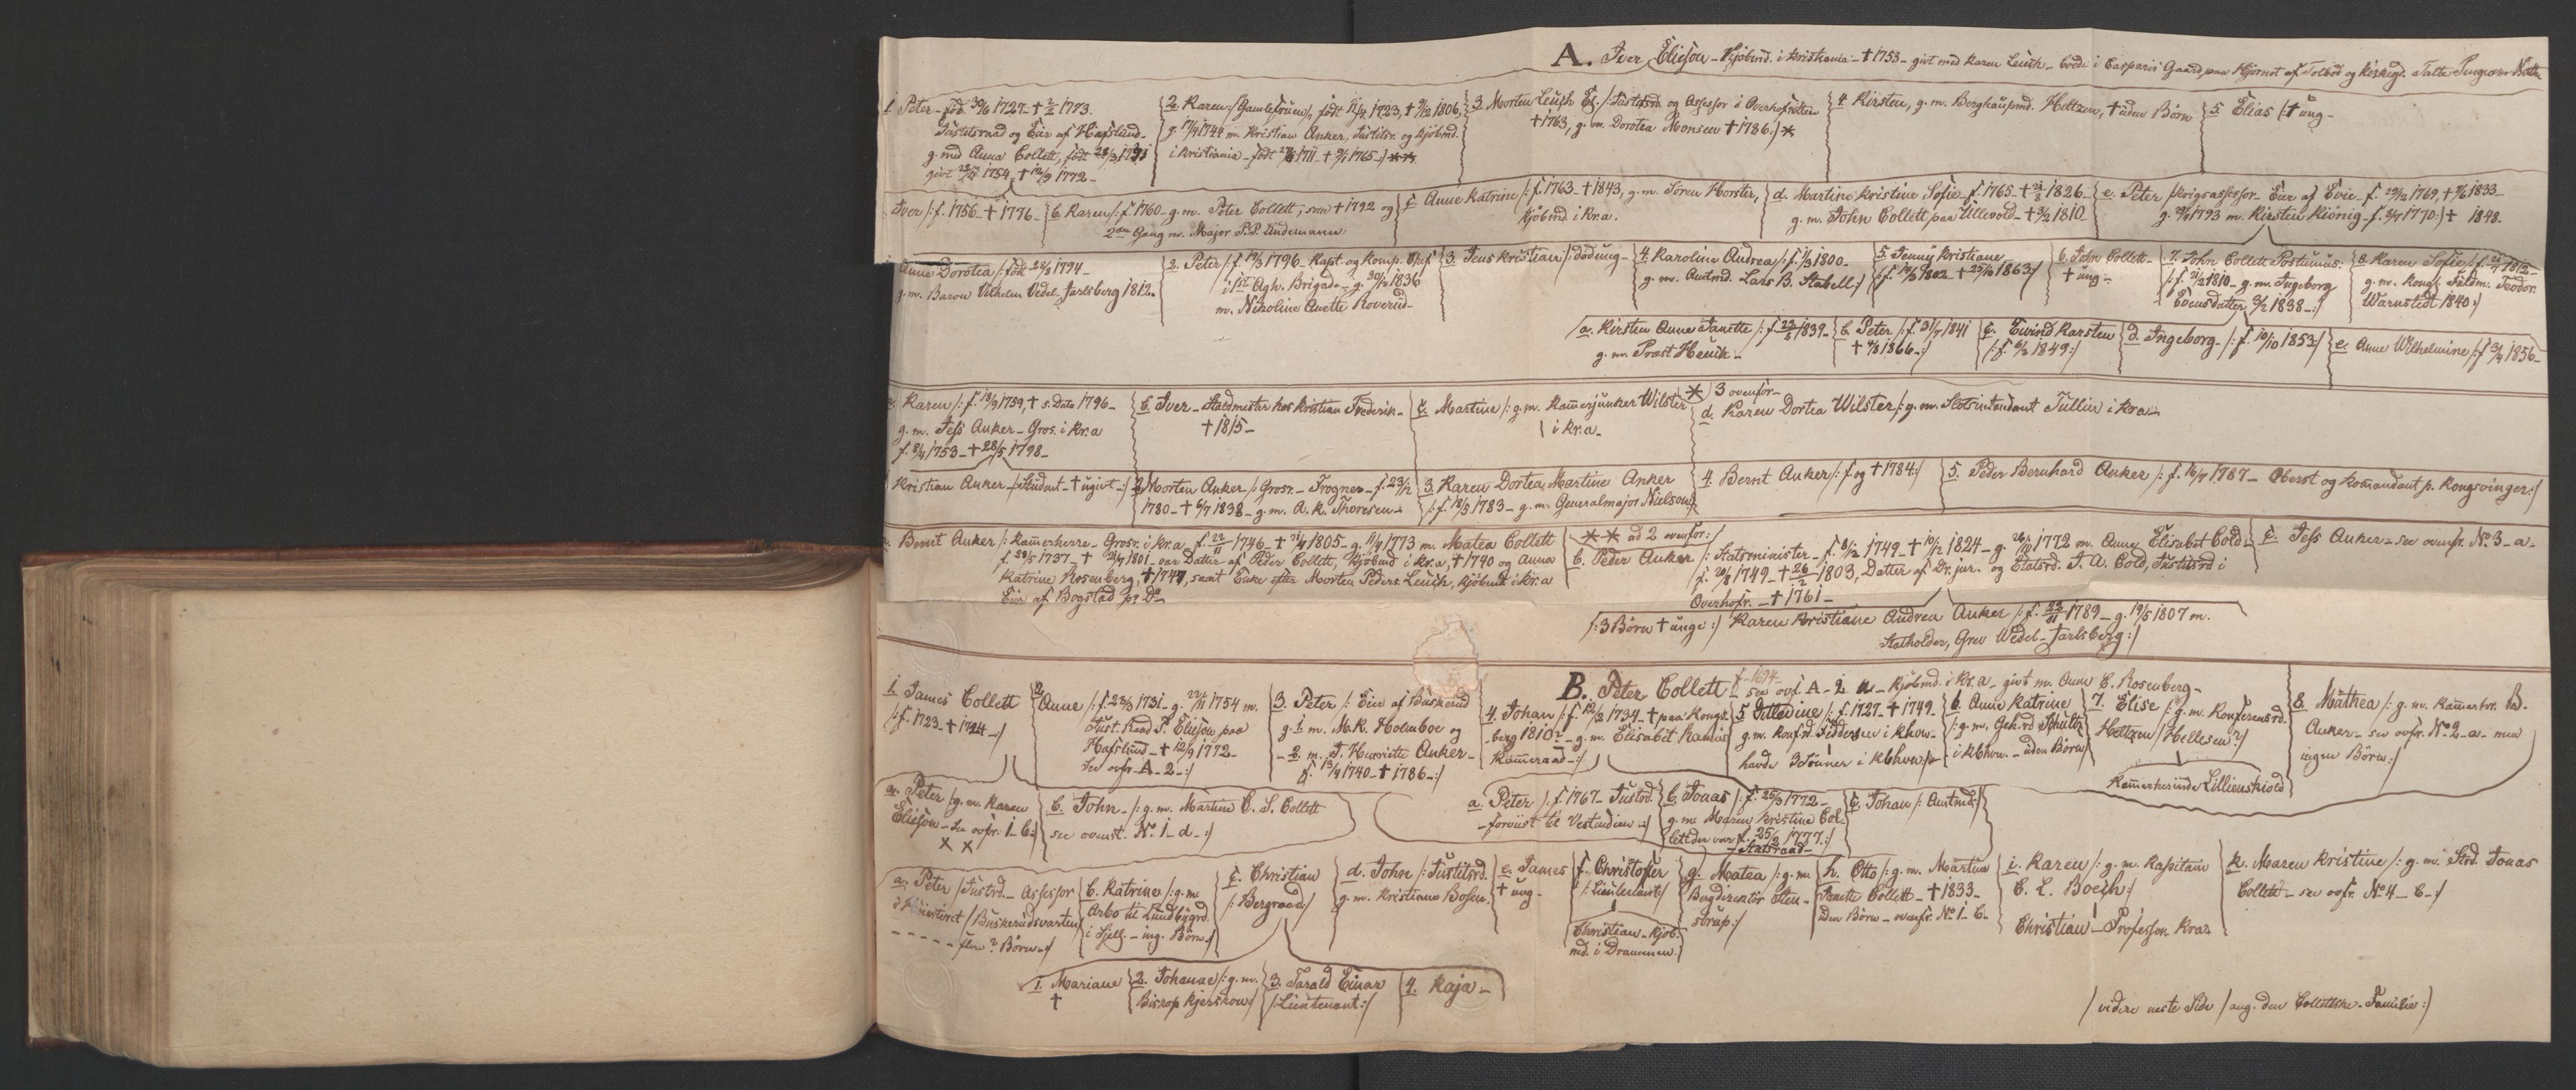 A. Iver Eliesøn – Kjøbmd. i Kristiania – † 1753 – givt med Karen Leuch – boede i Casparis Gaard paa Hjørnet af Tolbod og Kirkegd.
1. Peter – født 30/6 1727 – † 2/2 1773.
Justitsraad og Eier af Hafslund –
g. med Anna Collett, født 23/3 1731
givt 22/11 1754 † 12/9 1772 –
2. Karen /: Gamlefruen :/, født 11/12 1723, † 9/12 1806,
g. 17/9 1744 m. Kristian Anker, Justitsr. og Kjøbmd.
i Kristiania – født 1711 – † 1765 :/ **
3. Morten Leuch El. /: Justitsrd og Assessor i Overhofretten
† 1763, g. m. Dorotea Monsen † 1786 :/ *
4 Kirsten, g. m. Berghaupmd. Heltzen, † uden Børn
5 Elias /: † ung –
Iver /: f. 1756 – † 1776 –
b. Karen /: f. 1760 – g. m. Peter Collett, som † 1792 og
2den Gang m. Major P. P. Undemann:
c. Anne Katrine /: f. 1763 – † 1843, g. m. Søren Horster,
Kjøbmd i Kr.a.
d. Martine Kristine Sofie – f. 1765 – † 21/8 1826 –
g. m. John Collett paa Ullevold – † 3/2 1810 –
e. Peter Krigsassessor – Eier af Evie – f. 29/12 1769, † 1833 –
g. 1793 m. Kirsten Kiønig – f. 1770 :/ † 1848.
Anne Dorotea /: født 28/8 1794 –
g. m. Baron Vilhelm Vedel-Jarlsberg 1812.
2. Peter /: f. 19/3 1796 – Kapt. og Komp. Chef
i 1ste Agh. Brigade – g. 30/12 1836
m. Nikoline Anette Roverud –
3. Jens Kristian /: død ung –
4. Karoline Andrea /: f. 1/3 1800 –
g. m. Amtmd. Lars B. Stabell :/
5. Jenny Kristiane
/: f. 1802 – † 25/10 1863 :/
6. John Collett –
† ung –
7. John Collett Postumus:
/: f. 21/2 1810 – g. m. Ingeborg
Evensdatter 3/2 1838 – :/
8. Karen Sofie /: f. 1812 –
g. m. Kongl. Fuldm. Teodor
Warnstedt 1840 :/
a. Kirsten Anne Janette /: f. 23/5 1839 –
g. m. Præst Heuch –
b. Peter /: f. 31/7 1841
† 4/8 1866 – :/
c. Eivind Karsten
/: f. 6/2 1849 :/
d. Ingeborg – /: f. 10/10 1853 :/
e. Anne Wilhelmine /: f. 3/4 1856 –
* 3 ovenfor –
a. Karen /: f. 18/9 1759, † s. Dato 1796 –
g. m. Jess Anker – Gros. i Kr.a
f. 8/4 1753 – † 28/5 1798 –
b. Iver – Staldmester hos Kristian Frederik –
† 1815 –
c. Martine /: g. m. Kamerjunker Wilster
i Kr.a –
d. Karen Dortea Wilster /: g. m. Slotsintendant Tullin i Kr.a –
Kristian Anker – /: Student – † ugivt – :/
2. Morten Anker /: Grosr. – Frogner – f. 23/12
1780 – † 6/7 1838 – g. m. A. K. Thoresen –
3. Karen Dortea Martine Anker
/: f. 18/5 1783 – g. m. Generalmajor Nielson :/
4 Bernt Anker /: f. og † 1784 :/
5. Peder Bernhard Anker /: f. 16/7 1787 – Oberst og Komandant p. Kongsvinger :/
** ad 2 ovenfor :/
a. Bernt Anker /: Kamerherre – Grosr. i Kr.a f. 22/11 1746 – † 21/4 1805 – g. 11/9 1773 m. Matea Collett
f. 23/5 1737 – † 1801 – var Datter af Peder Collett, Kjøbmd i Kr.a, † 1740 og Anna
Katrine Rosenberg, † 1747, samt Enke efter Morten Peders. Leuch, Kjøbmd i Kr.a
Eier af Bogstad p. p.
b. Peder Anker /: Statsminister – f. 8/12 1749 – † 10/12 1824 – g. 26/10 1772 m. Anne Elisabet Cold –
f. 1749 – † 26/2 1803, Datter af Dr. jur. og Etatsrd. I. A. Cold, Justitsrd i
Overhofr. – † 1761 –
c. Jess Anker – see ovenfr. No. 3 – a –
/: 3 Børn † unge :/ Karen Kristiane Andrea Anker /: f. 23/11 1789 – g. 19/5 1807 m.
Statholder, Grev Wedel-Jarlsberg :/
B. Peter Collett f. 1694 – see ovf. A – 2 a – Kjøbmd. i Kr.a – givt m. Anne C. Rosenberg –
1. James Collett
/: f. 1723 – † 1794 – :/
2. Anne /: f. 23/3 1731 – g. 22/11 1754 m.
Just. Raad P. Eliesøn paa
Hafslund – † 12/9 1772 –
See ovfr. A – 2 – :/
3. Peter /: Eier af Buskerud
g. 1 m. M. K. Holmboe og
– 2 m. J. Henriette Anker –
f. 13/4 1740 – † 1786 – :/
4. Johan /: f. 12/2 1734 – † paa Kongs-
berg 1810? – g. m. Elisabet Ramus
Kameraad – :/
5 Ditlevine /: f. 1727 – † 1749 –
g. m. Konf.rd Feddersen i Kbhvn –
havde 3 Sønner i Kbhvn :/
6. Anne Katrine
/: g. m. Geh.rd Schultz
i Kbhvn. – uden Børn :/
7. Elise /: g. m. Konferensrd.
Heltzen / Hellesen? :/
Kamerherinde Lillienskiold
8. Mathea /: g. m. Kamerhr. B.
Anker – see ovfr. No. 2 – a – men
ingen Børn :/
a. Peter /: g. m. Karen
Eliesøn – See ovfr. 1 – b :/
x x
b. John – /: g. m. Martine C. S. Collett
see ovenst. No. 1 – d – :/
a. Peter /: f. 1767 – Justsrd.
– forviist til Vestindien – :/
b. Jonas /: f. 25/3 1772 –
g. m. Maren Kristine Col-
lett der var f. 25/2 1777 :/
– Statsraad –
c. Johan /: Amtmd :/
a. Peter / Justrd. – Assessor
/ Buskerudsvarten /
– – – – – flere? Børn – :/
b. Katrine /: g. m.
Arbo til Lundbygrd.
i Sjell. – ing. Børn :/
c. Christian
/: Bergraad :/
d. John /: Justitsrd.
g. m. Kristiane Bosen.
e. James
† ung –
f. Christoffer
/: Lieutenant :/
Christian – Kjøb-
md. i Drammen :/
g. Matea /: g. m.
Bergdirektør Sten-
strup :/
h. Otto /: g. m. Martine
Janette Collett – † 1833 –
uden Børn – ovenfr. No. 1 – b –
i. Karen /: g. m. Kapitain
C. L. Boeck :/
Christian – Professor. Kr.a.
k. Maren Kristine /: g. m. Strd. Jonas
Collett – see ovfr. No 4 – b – :/
1. Mariane
†
2. Johanne /: g. m.
Biskop Kjerschow :/
3. Tarald Einar
/: Lieutenant :/
4. Kaja –
/ videre neste Side / ang. den Collettske – Familie :/